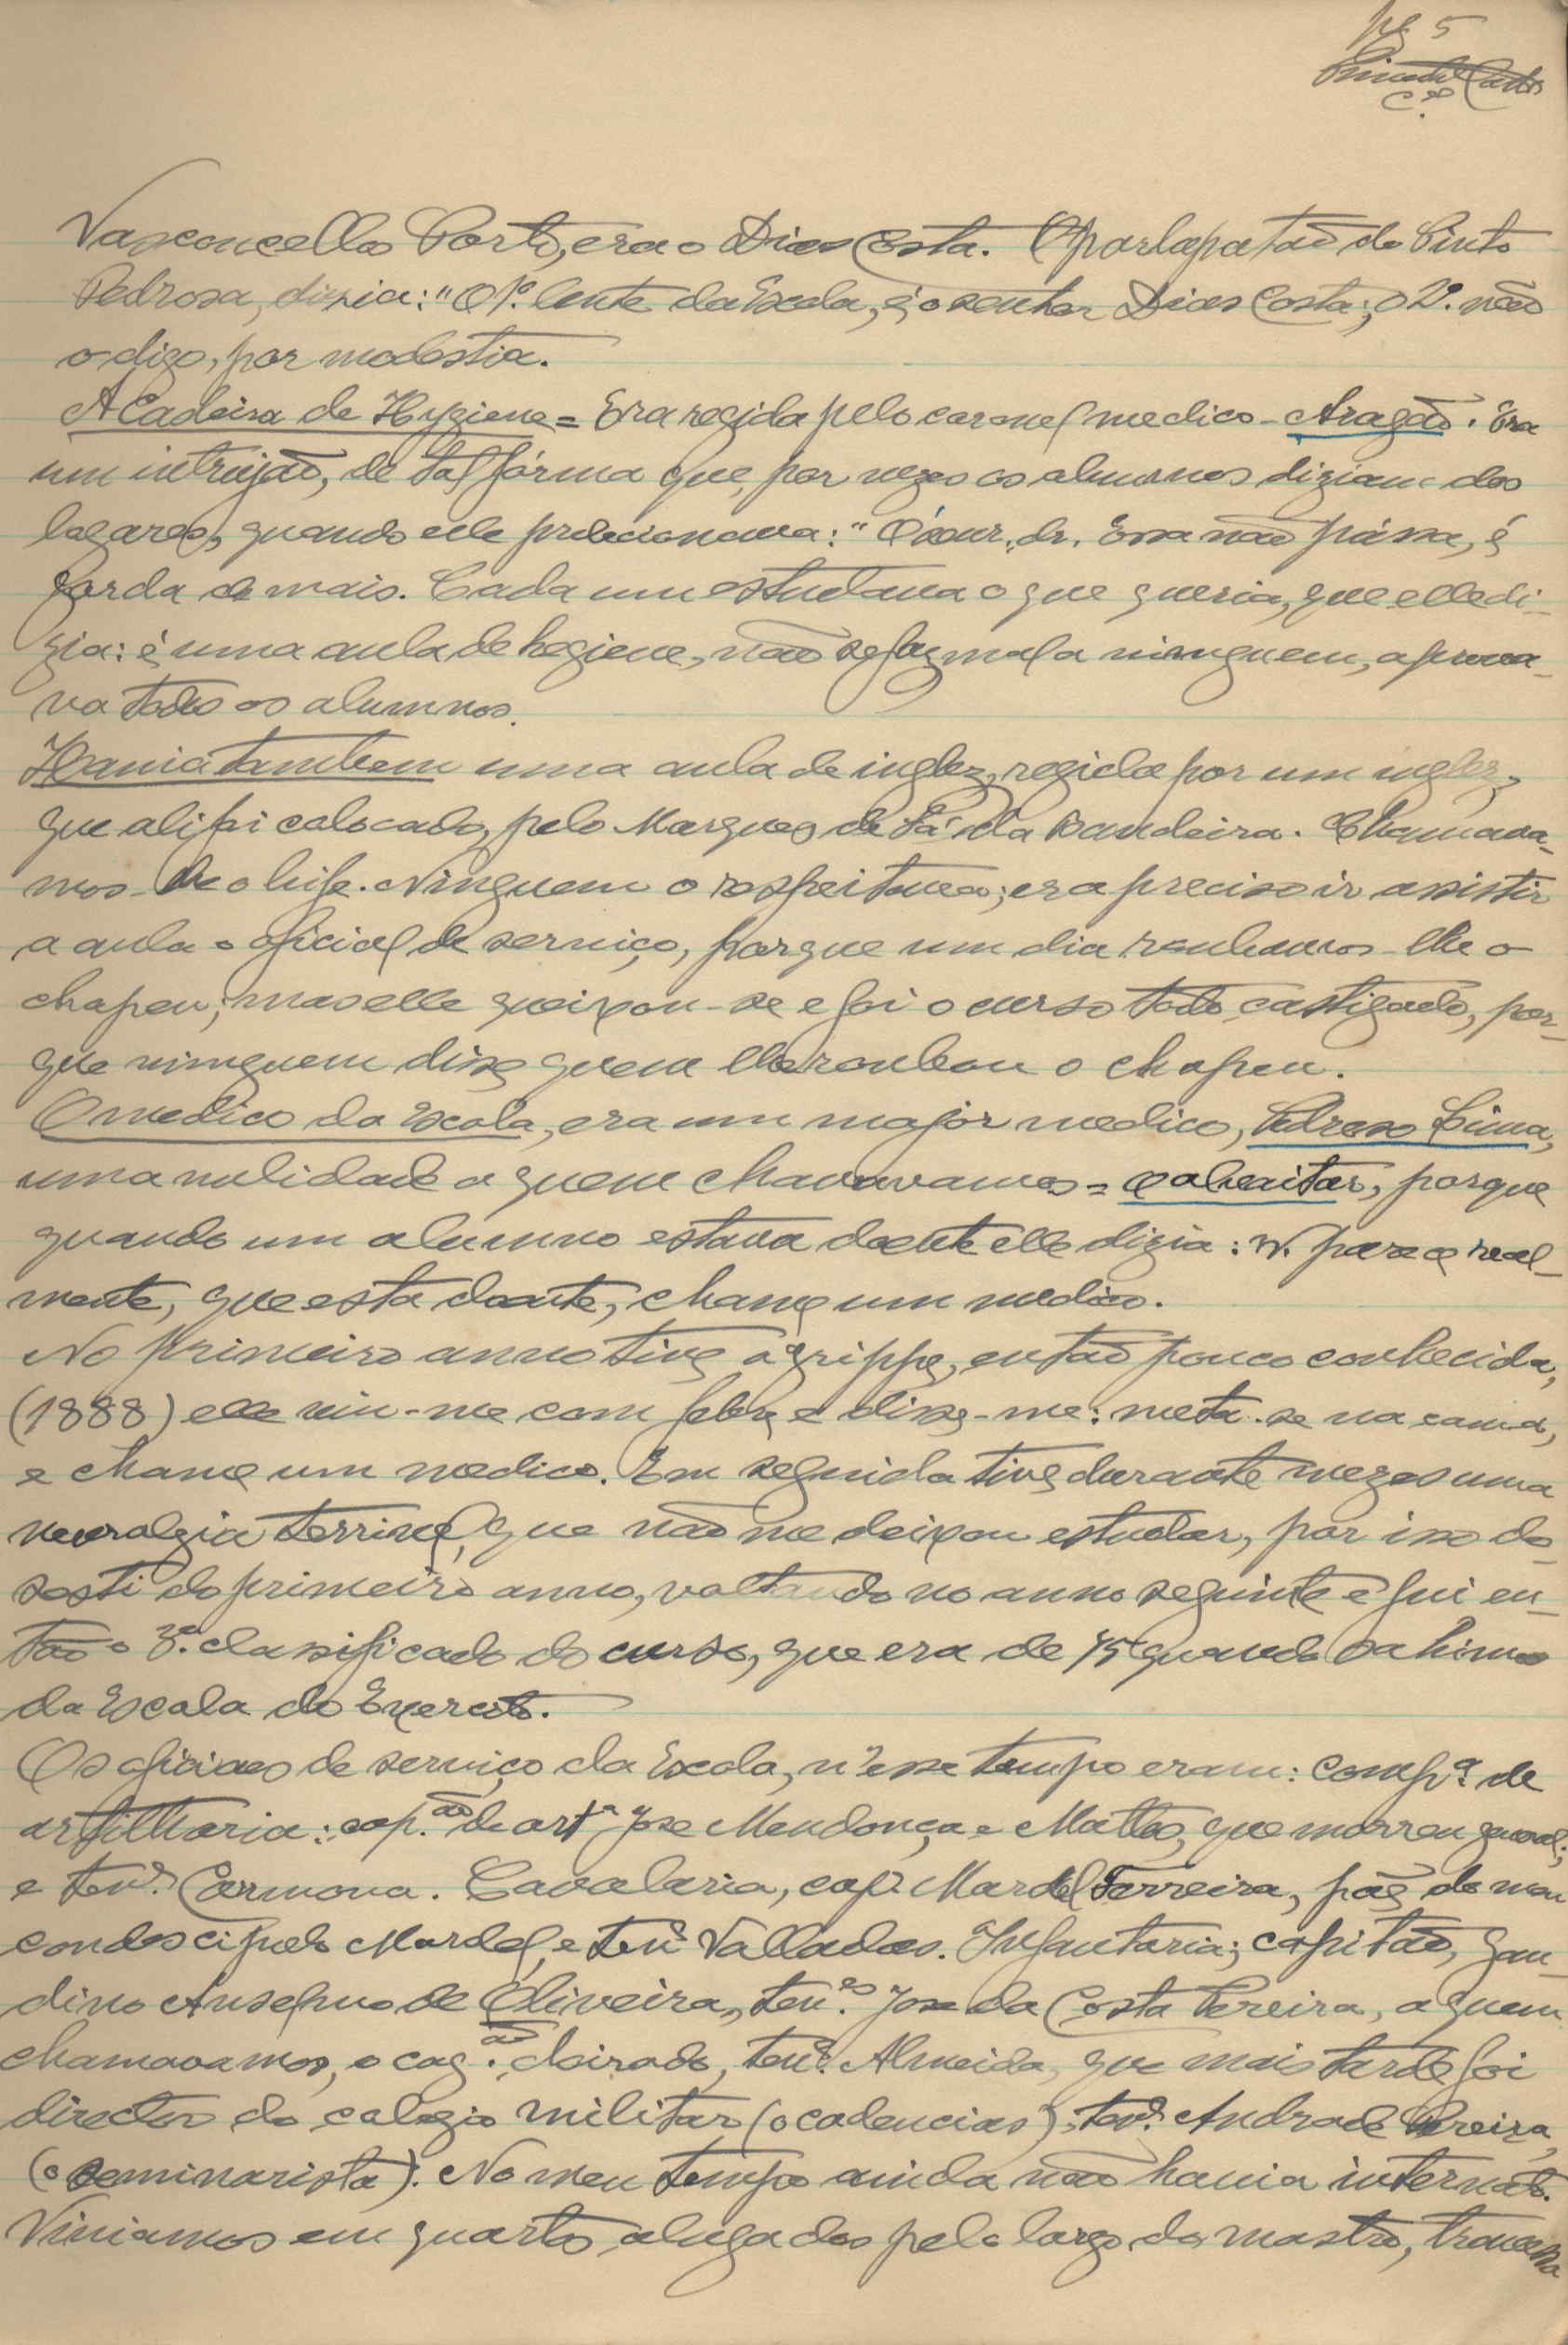 pg 5
Vasconcellos Porto, era o Dias Costa. O parlapatão do Pinto
Pedrosa, dizia: "O 1º. lente da Escola, é o senhor Dias Costa; o 2º. não
o digo, por modestia.
A Cadeira de Hygiene = Era regida pelo coronel medico - Aragão. Era
um intrujão, de tal fórma que, por vezes os alumnos diziam dos
logares, quando elle prelecionava: " dr. Essa não pássa, é
gorda de mais. Cada um estudava o que queria, que elle di-
zia: é uma aula de hegiene, não se faz mal a ninguem, aprova-
va todos os alumnos.
Havia tambem uma aula de inglez, regida por um inglez,
que ali foi colocado, pelo Marquez de Sá da Bandeira. Chamava-
mos-lhe o bife. Ninguem o respeitava; era preciso ir assistir
a aula o oficial de serviço, porque um dia roubamos-lhe o
chapeu; mas elle queixou-se e foi o curso todo castigado, por-
que ninguem disse quem lhe roubou o chapeu.
O medico da Escola, era um major medico, Pedroso Lima,
uma nulidade a quem chamavamos = o alveitar, porque
quando um alumno estava doente elle dizia: V. parece real-
mente, que esta doente, chame um medico.
No primeiro anno tive a grippe, então pouco conhecida,
(1888) elle viu-me com febre e disse-me: meta-se na cama,
e chame um medico. Em seguida tive durante mezes uma
nevralgia terrivel, que não me deixou estudar, por isso de-
sesti do primeiro anno, voltando no anno seguinte e fui en-
tão o 3º. classificado do curso, que era de 75 quando sahimos
da Escola do Exercito.
Os oficiaes de serviço da Escola, n'esse tempo eram: compª. de
artilharia: cap.ão de artª José Mendonça e Mattos, que morreu general;
e tenº. Carmona. Cavalaria, cap. Mardel Ferreira, páe do meu
condescipulo Mardel, e tenº Valladas. Infantaria; capitão, Gau-
dino Anselmo de Oliveira, ten.es José da Costa Pereira, a quem
chamavamos, o cag.ão cheirado, tenº. Almeida, que mais tarde foi
director do colegio militar (o cadencias); tenº. Andrade Pereira,
(o seminarista). No meu tempo ainda não havia internato.
Viviamos em quartos alugados pelo largo do mastro, travessa